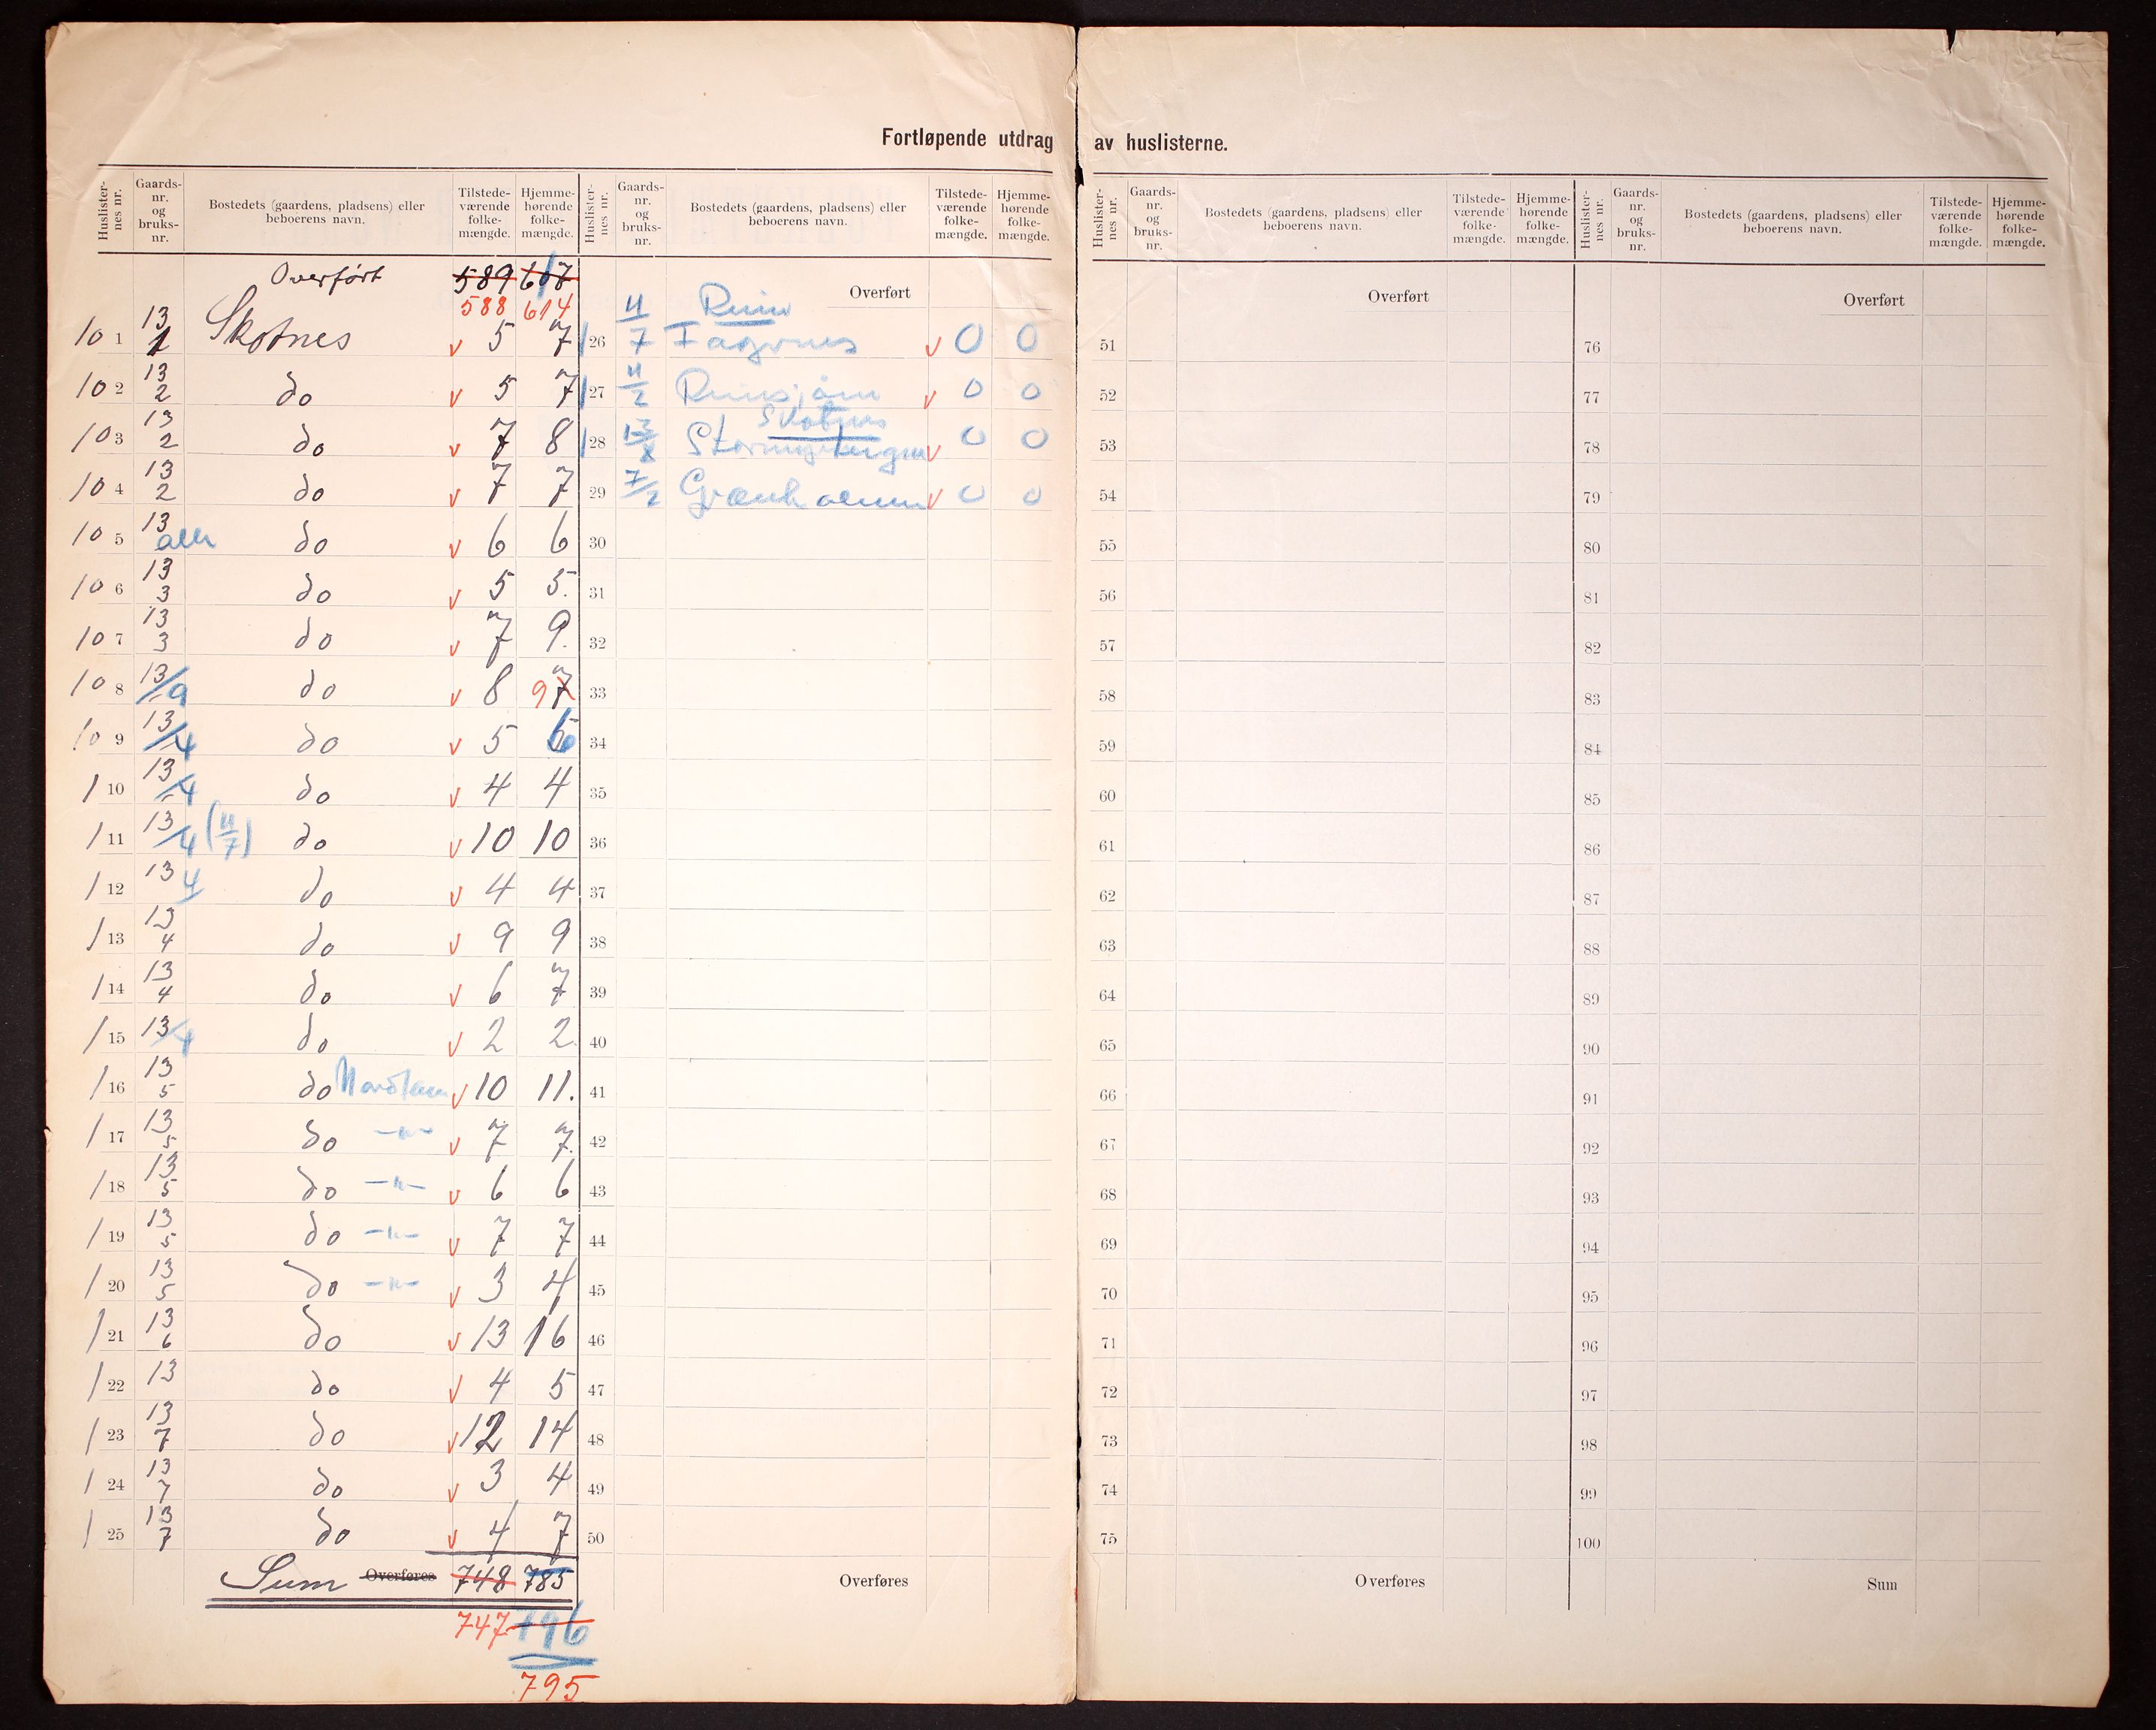 Fortløpende utdrag av huslisterne.
Huslisternes nr. Gaardsnr. og bruksnr. Bostedets (gaardens, pladsens) eller beboerens navn. Tilstedeværende folkemængde. Hjemmehørende folkemængde.
Overført 589 617
588 614
101 13/1 Skotnes v 5 7
102 13/2 do v 5 7
103 13/2 do v 7 8
104 13/2 do v 7 7
105 13 do v 6 6
106 13/3 do v 5 5.
107 13/3 do v 7 9.
108 13/9 do v 8 9 7
109 13/4 do v 5 6
110 13/4 do v 4 4
111 13/4 (11/7) do v 10 10
112 13/4 do v 4 4
113 13/4 do v 9 9
114 13/4 do v 6 7
115 13/4 do v 2 2.
116 13/5 do v 10 11.
117 13/5 do -"- v 7 7.
118 13/5 do -"- v 6 6
119 13/5 do -"- v 7 7
120 13/5 do -"- v 3 4
121 13/6 do v 13 16
122 13 do v 4 5
123 13/7 do v 12 14
124 13/7 do v 3 4
125 13/7 do v 4 7
Sum Overføres 748 785
747 796
795
Huslisternes nr. Gaardsnr. og bruksnr. Bostedets (gaardens, pladsens) eller beboerens navn. Tilstedeværende folkemængde. Hjemmehørende folkemængde.
Overført
126 11/7 Fagernes v 0 0
127 11/2 v 0 0
Skotnes
128 v 0 0
29 7/2 v 0 0
30
31
32
33
34
35
36
37
38
39
40
41
42
43
44
45
46
47
48
49
50
Overføres
Huslisternes nr. Gaardsnr. og bruksnr. Bostedets (gaardens, pladsens) eller beboerens navn. Tilstedeværende folkemængde. Hjemmehørende folkemængde.
Overført
51
52
53
54
55
56
57
58
59
60
61
62
63
64
65
66
67
68
69
70
71
72
73
74
75
Overføres
Huslisternes nr. Gaardsnr. og bruksnr. Bostedets (gaardens, pladsens) eller beboerens navn. Tilstedeværende folkemængde. Hjemmehørende folkemængde.
Overført
76
77
78
79
80
81
82
83
84
85
86
87
88
89
90
91
92
93
94
95
96
97
98
99
100
Sum